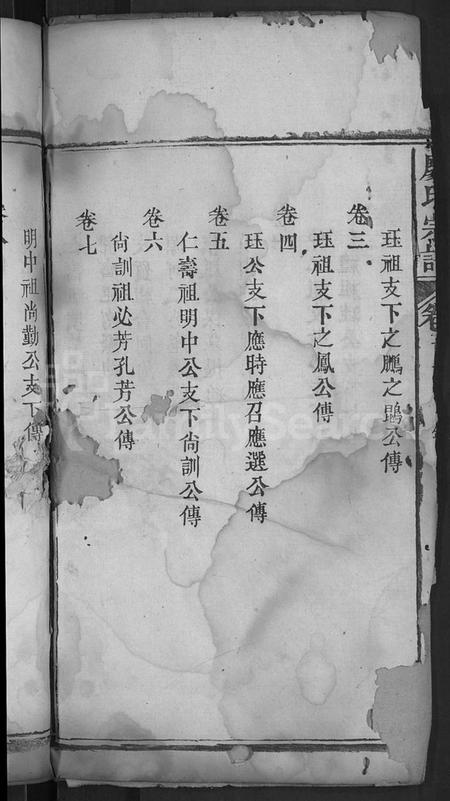 氏宗譜 卷
珏祖支下之鵬之鵾公傳
卷三
珏祖支下之鳳公傳
卷四
珏公支下應時應召應選公傳
卷五
仁壽祖明中公支下尚訓公傳
卷六
尚訓祖必芳孔芳公傳
卷七
明中祖尚勤公支下傳
FamilySearch